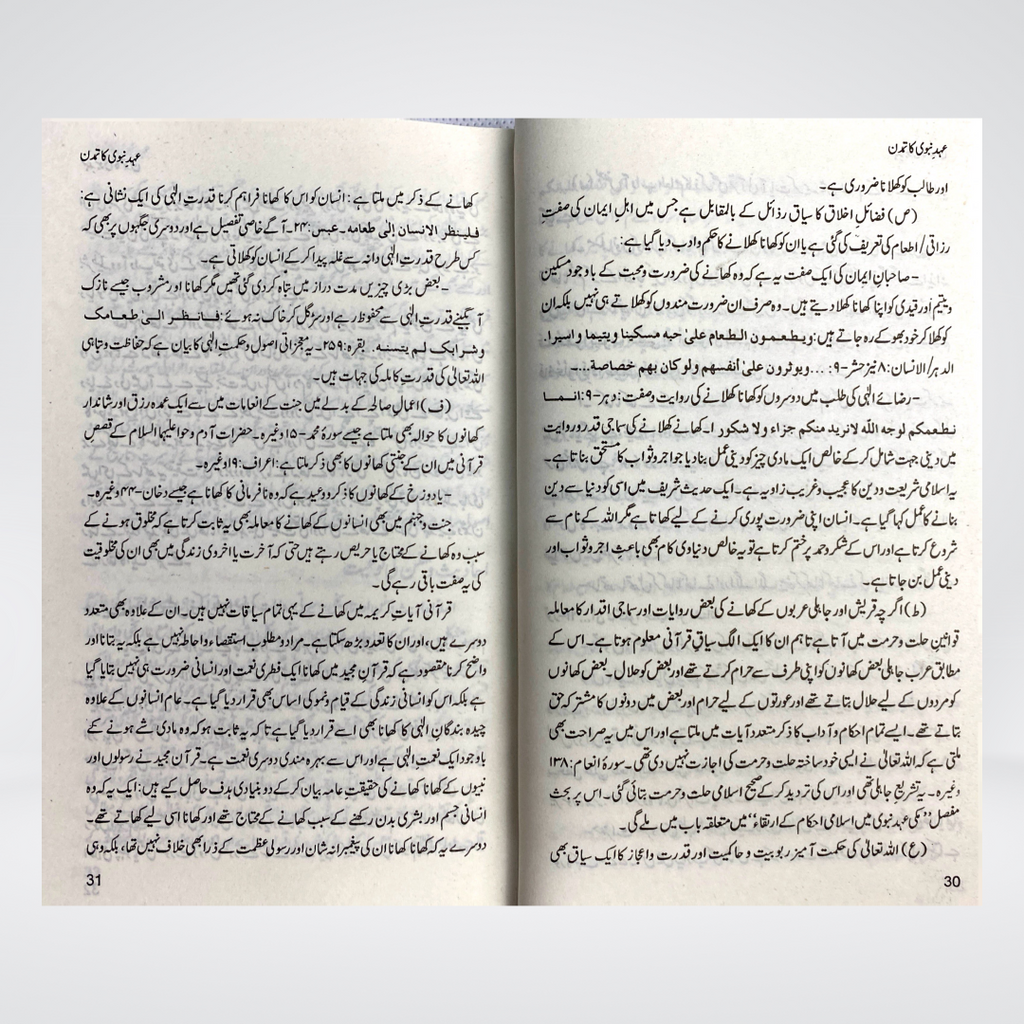 عہدِ نبوی کا تمدن
اور طالب کو کھلانا ضروری ہے۔
(ص) فضائلِ اخلاق کا سیاق رذائل کے بالمقابل ہے جس میں اہلِ ایمان کی صفتِ
رزاقی/اطعام کی تعریف کی گئی ہے یا ان کو کھانا کھلانے کا حکم و ادب دیا گیا ہے:
-صاحبانِ ایمان کی ایک صفت یہ ہے کہ وہ کھانے کی ضرورت ومحبت کے باوجود مسکین
ویتیم اور قیدی کو اپنا کھانا کھلا دیتے ہیں۔ وہ صرف ان ضرورت مندوں کو کھلاتے ہی نہیں بلکہ ان
کو کھلا کر خود بھوکے رہ جاتے ہیں: ویطعمون الطعام علیٰ حبه مسکینا ویتیما واسیرا۔
الدہر/الانسان:۸ نیز حشر-۹: ...ویوثرون علیٰ أنفسهم ولو کان بهم خصاصة...۔
-رضائے الٰہی کی طلب میں دوسروں کو کھانا کھلانے کی روایت وصفت: دہر-۹: انما
نطعمکم لوجه اللّٰه لانرید منکم جزاء ولا شکورا۔ کھانے کھلانے کی سماجی قدر و روایت
میں دینی جہت شامل کر کے خالص ایک مادی چیز کو دینی عمل بنا دیا جو اجر وثواب کا مستحق بناتا ہے۔
یہ اسلامی شریعت ودین کا عجیب وغریب زاویہ ہے۔ ایک حدیث شریف میں اسی کو دنیا سے دین
بنانے کا عمل کہا گیا ہے۔ انسان اپنی ضرورت پوری کرنے کے لیے کھاتا ہے مگر اللہ کے نام سے
شروع کرتا ہے اور اس کے شکر وحمد پر ختم کرتا ہے تو یہ خالص دنیاوی کام بھی باعثِ اجر وثواب اور
دینی عمل بن جاتا ہے۔
(ط) اگرچہ قریش اور جاہلی عربوں کے کھانے کی بعض روایات اور سماجی اقدار کا معاملہ
قوانینِ حلت وحرمت میں آتا ہے تاہم ان کا ایک الگ سیاقِ قرآنی معلوم ہوتا ہے۔ اس کے
مطابق عرب جاہلی بعض کھانوں کو اپنی طرف سے حرام کرتے تھے اور بعض کو حلال۔ بعض کھانوں
کو مردوں کے لیے حلال بتاتے تھے اور عورتوں کے لیے حرام اور بعض میں دونوں کا مشترکہ حق
بتاتے تھے۔ ایسے تمام احکام وآداب کا ذکر متعدد آیات میں ملتا ہے اور اس میں یہ صراحت بھی
ملتی ہے کہ اللہ تعالیٰ نے ایسی خود ساختہ حلت وحرمت کی اجازت نہیں دی تھی۔ سورۂ انعام: ۱۳۸
وغیرہ۔ یہ تشریعِ جاہلی تھی اور اس کی تردید کر کے صحیح اسلامی حلت وحرمت بتائی گئی۔ اس پر بحث
مفصل ”مکی عہد نبوی میں اسلامی احکام کے ارتقاء“ میں متعلقہ باب میں ملے گی۔
(ع) اللہ تعالیٰ کی حکمت آمیز ربوبیت وحاکمیت اور قدرت واعجاز کا ایک سیاق بھی
30
عہدِ نبوی کا تمدن
کھانے کے ذکر میں ملتا ہے: انسان کو اس کا کھانا فراہم کرنا قدرتِ الٰہی کی ایک نشانی ہے:
فلینظر الانسان إلی طعامه۔ عبس: ۲۴۔ آگے خاصی تفصیل ہے اور دوسری جگہوں پر بھی کہ
کس طرح قدرتِ الٰہی دانہ سے غلہ پیدا کر کے انسان کو کھلاتی ہے۔
-بعض بڑی چیزیں مدت دراز میں تباہ کر دی گئی تھیں مگر کھانا اور مشروب جیسے نازک
آبگینے قدرتِ الٰہی سے محفوظ رہے اور سڑ گل کر خاک نہ ہوئے: فانظر الیٰ طعامک
وشرابک لم یتسنه۔ بقرہ: ۲۵۹۔ یہ معجزاتی اصول وحکمتِ الٰہی کا بیان ہے کہ حفاظت وتباہی
اللہ تعالیٰ کی قدرتِ کاملہ کی جہات ہیں۔
(ف) اعمالِ صالحہ کے بدلے میں جنت کے انعامات میں سے ایک عمدہ رزق اور شاندار
کھانوں کا حوالہ بھی ملتا ہے جیسے سورۂ محمد-۱۵ وغیرہ۔ حضرات آدم وحوا علیہا السلام کے قصصِ
قرآنی میں ان کے جنتی کھانوں کا بھی ذکر ملتا ہے: اعراف: ۱۹ وغیرہ۔
-یا دوزخ کے کھانوں کا ذکر ووعید ہے کہ وہ نافرمانی کا کھانا ہے جیسے دخان-۴۴ وغیرہ۔
جنت وجہنم میں بھی انسانوں کے کھانے کا معاملہ بھی یہ ثابت کرتا ہے کہ مخلوق ہونے کے
سبب وہ کھانے کے محتاج یا حریص رہتے ہیں حتیٰ کہ آخرت یا اخروی زندگی میں بھی ان کی مخلوقیت
کی یہ صفت باقی رہے گی۔
قرآنی آیاتِ کریمہ میں کھانے کے یہی تمام سیاقات نہیں ہیں۔ ان کے علاوہ بھی متعدد
دوسرے ہیں، اور ان کا تعدد بڑھ سکتا ہے۔ مراد و مطلوب استقصاء واحاطہ نہیں ہے بلکہ یہ بتانا اور
واضح کرنا مقصود ہے کہ قرآن مجید میں کھانا ایک فطری نعمت اور انسانی ضرورت ہی نہیں بتایا گیا
ہے بلکہ اس کو انسانی زندگی کے قیام ونمو کی اساس بھی قرار دیا گیا ہے۔ عام انسانوں کے علاوہ
چیدہ بندگانِ الٰہی کا کھانا بھی اسے قرار دیا گیا ہے تاکہ یہ ثابت ہو کہ وہ مادی شے ہونے کے
باوجود ایک نعمتِ الٰہی ہے اور اس سے بہرہ مندی دوسری نعمت ہے۔ قرآن مجید نے رسولوں اور
نبیوں کے کھانا کھانے کی حقیقتِ عامہ بیان کر کے دو بنیادی ہدف حاصل کیے ہیں: ایک یہ کہ وہ
انسانی جسم اور بشری بدن رکھنے کے سبب کھانے کے محتاج تھے اور کھانا اسی لیے کھاتے تھے۔
دوسرے یہ کہ کھانا کھانا ان کی پیغمبرانہ شان اور رسولی عظمت کے ذرا بھی خلاف نہیں تھا، بلکہ وہی
31